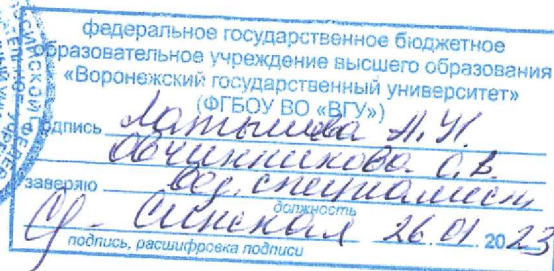 федеральное государственное бюджетное
образовательное учреждение высшего образования
«Воронежский государственный университет»
(ФГБОУ ВО «ВГУ»)
подпись Латышева А.И.
Овчинникова О.В.
заверяю вед. специалист
должность
Синская 26.01 2023
подпись, расшифровка подписи